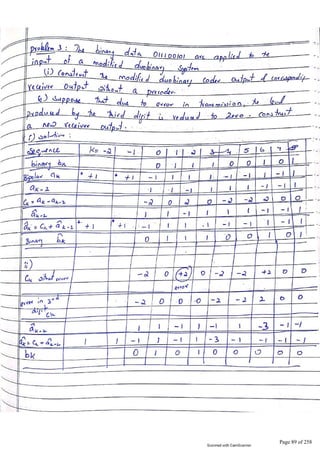 problem 3: The binary data 011100101 are applied to the
input of a modified duobinary system
(i) Construct the modified duobinary coder output & corresponding
receiver output without a precoder
ii) suppose that due to error in transmission, the level
produced by the third digit is reduced to zero. construct
a new receiver output.
(i) solution:
sequence K= -2 -1 0 1 2 3 4 5 6 7 8
binary bk 0 1 1 1 0 0 1 0 1
Bipolar ak +1 +1 -1 1 1 1 -1 -1 1 -1 1
ak-2 1 1 -1 1 1 1 -1 -1 1
Ck = ak-ak-2 -2 0 2 0 -2 -2 2 0 0
âk-2 1 1 -1 1 1 1 -1 -1
âk = Ck + âk-2 +1 +1 -1 1 1 1 -1 -1 1 -1 1
Binary b̂k 0 1 1 1 0 0 1 0 1
ii)
Ck without error -2 0 +2 0 -2 -2 +2 0 0
error
error in 3rd
digit
Ck -2 0 0 0 -2 -2 2 0 0
âk-2 1 1 -1 1 -1 1 -3 -1 -1
âk = Ck + âk-2 1 1 -1 1 -1 1 -3 -1 -1 -1 -1
bk 0 1 0 1 0 0 0 0 0
Scanned with CamScanner
Page 89 of 258